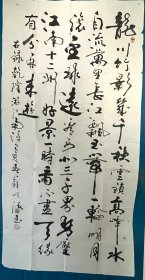 龍川竹影幾千秋雲鎖高峰水
自流萬里長江飄玉帶一輪明月
金球遠三千界勢壓
江南十二洲好景一時看不盡天緣
有分再來遊
右錄乾隆游江南詩